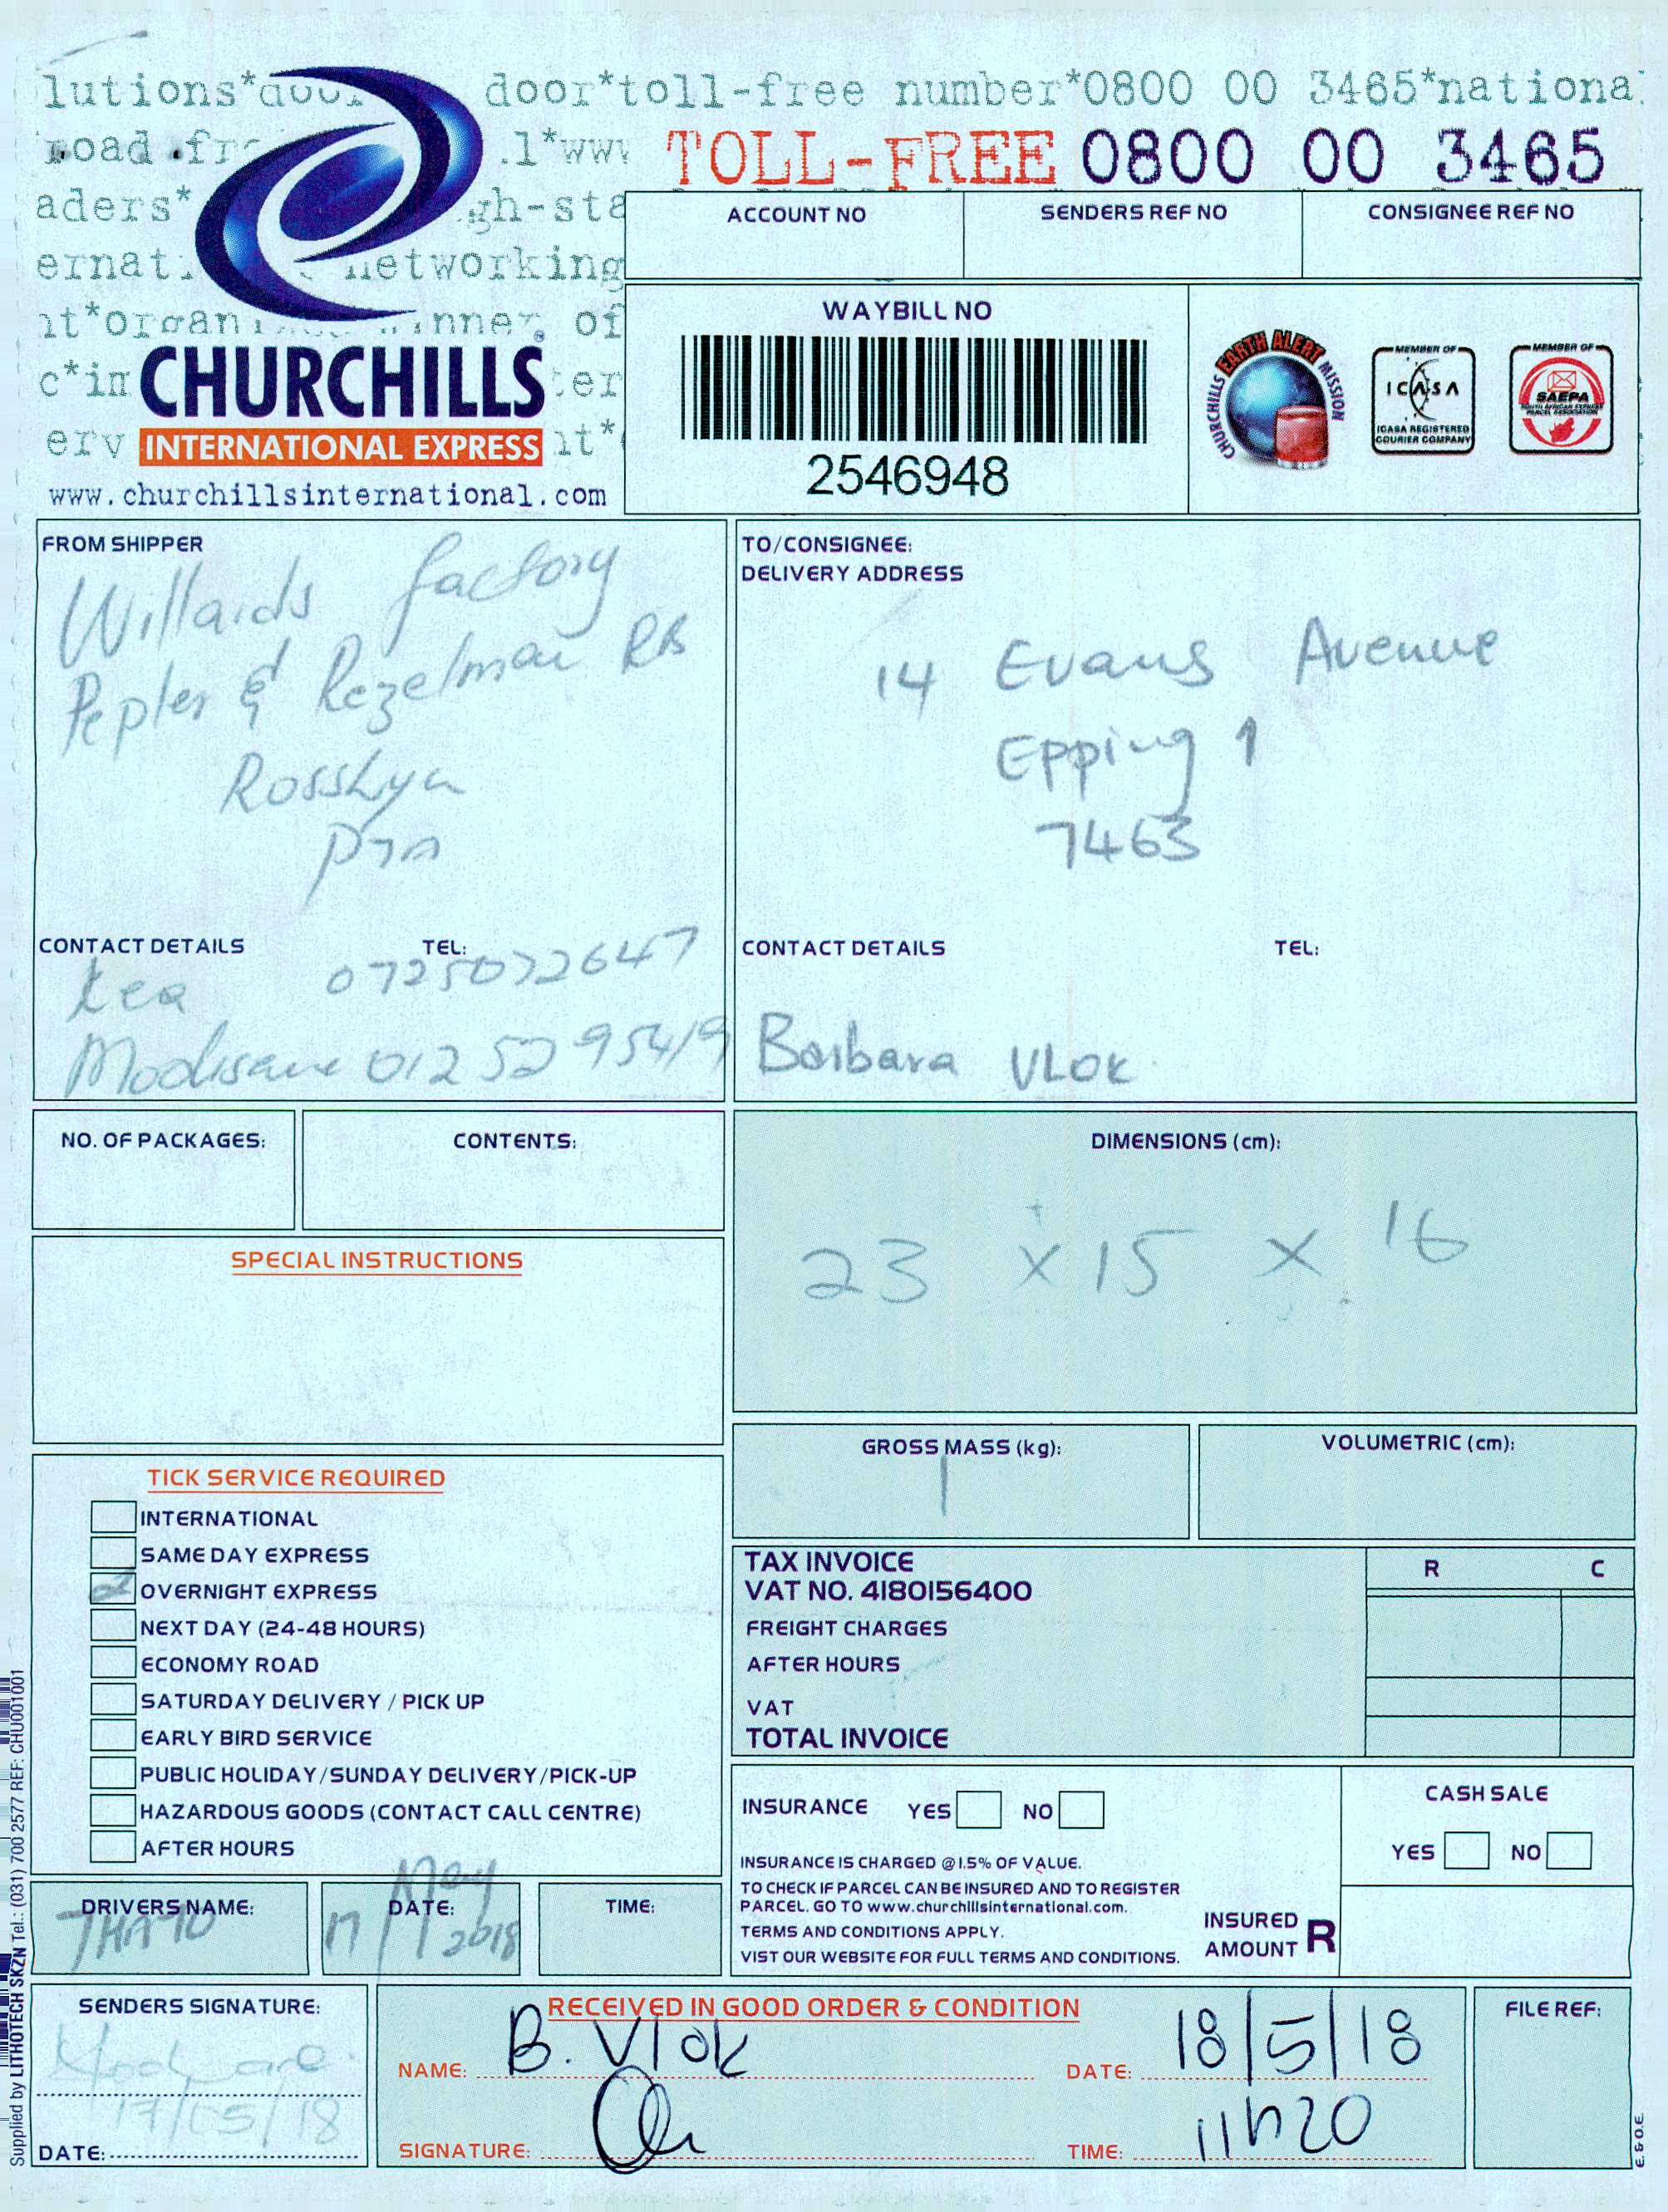 lutions*door door*toll-free number*0800 00 3465*national
road fre .l*www TOLL-FREE 0800 00 3465
aders* gh-sta
ernati networking
nt*organi inner of
c*im ter
erv nt*
CHURCHILLS
INTERNATIONAL EXPRESS
www.churchillsinternational.com
ACCOUNT NO SENDERS REF NO CONSIGNEE REF NO
WAYBILL NO
2546948
CHURCHILLS EARTH ALERT MISSION
MEMBER OF
ICASA
ICASA REGISTERED
COURIER COMPANY
MEMBER OF
SAEPA
SOUTH AFRICAN EXPRESS
PARCEL ASSOCIATION
FROM SHIPPER
Willards factory
Pepler & Rezelman Rd
Rosslyn
PTA
CONTACT DETAILS TEL:
Kea 0725072647
Modisane 012 52 95419
TO/CONSIGNEE:
DELIVERY ADDRESS
14 Evans Avenue
Epping 1
7463
CONTACT DETAILS TEL:
Barbara VLOK
NO. OF PACKAGES: CONTENTS:
DIMENSIONS (cm):
23 x 15 x 16
SPECIAL INSTRUCTIONS
GROSS MASS (kg): VOLUMETRIC (cm):
1
TICK SERVICE REQUIRED
INTERNATIONAL
SAME DAY EXPRESS
OVERNIGHT EXPRESS
NEXT DAY (24-48 HOURS)
ECONOMY ROAD
SATURDAY DELIVERY / PICK UP
EARLY BIRD SERVICE
PUBLIC HOLIDAY/SUNDAY DELIVERY/PICK-UP
HAZARDOUS GOODS (CONTACT CALL CENTRE)
AFTER HOURS
TAX INVOICE R C
VAT NO. 4180156400
FREIGHT CHARGES
AFTER HOURS
VAT
TOTAL INVOICE
INSURANCE YES NO
INSURANCE IS CHARGED @ 1.5% OF VALUE.
TO CHECK IF PARCEL CAN BE INSURED AND TO REGISTER
PARCEL. GO TO www.churchillsinternational.com.
TERMS AND CONDITIONS APPLY.
VIST OUR WEBSITE FOR FULL TERMS AND CONDITIONS.
INSURED
AMOUNT R
CASH SALE
YES NO
DRIVERS NAME: DATE: TIME:
THATO 17 / May / 2018
SENDERS SIGNATURE:
17/05/18
DATE:
RECEIVED IN GOOD ORDER & CONDITION
NAME: B. Vlok DATE: 18/5/18
SIGNATURE: TIME: 11h20
FILE REF:
E.&O.E.
Supplied by LITHOTECH SKZN Tel.: (031) 700 2577 REF: CHU001001